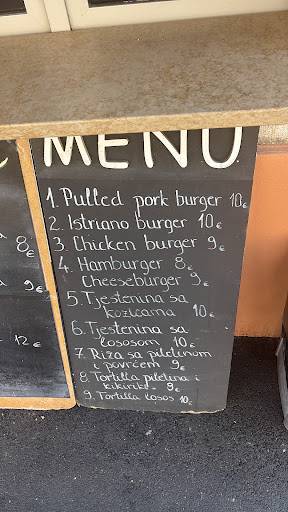 MENU
1. Pulled pork burger 10€
2. Istriano burger 10€
3. Chicken burger 9€
4. Hamburger 8€
Cheeseburger 9€
5. Tjestenina sa
kozicama 10€
6. Tjestenina sa
lososom 10€
7. Riža sa piletinom
i povrćem 9€
8. Tortilla piletina i
kikiriki 9€
9. Tortilla losos 10€
8€
9€
12€